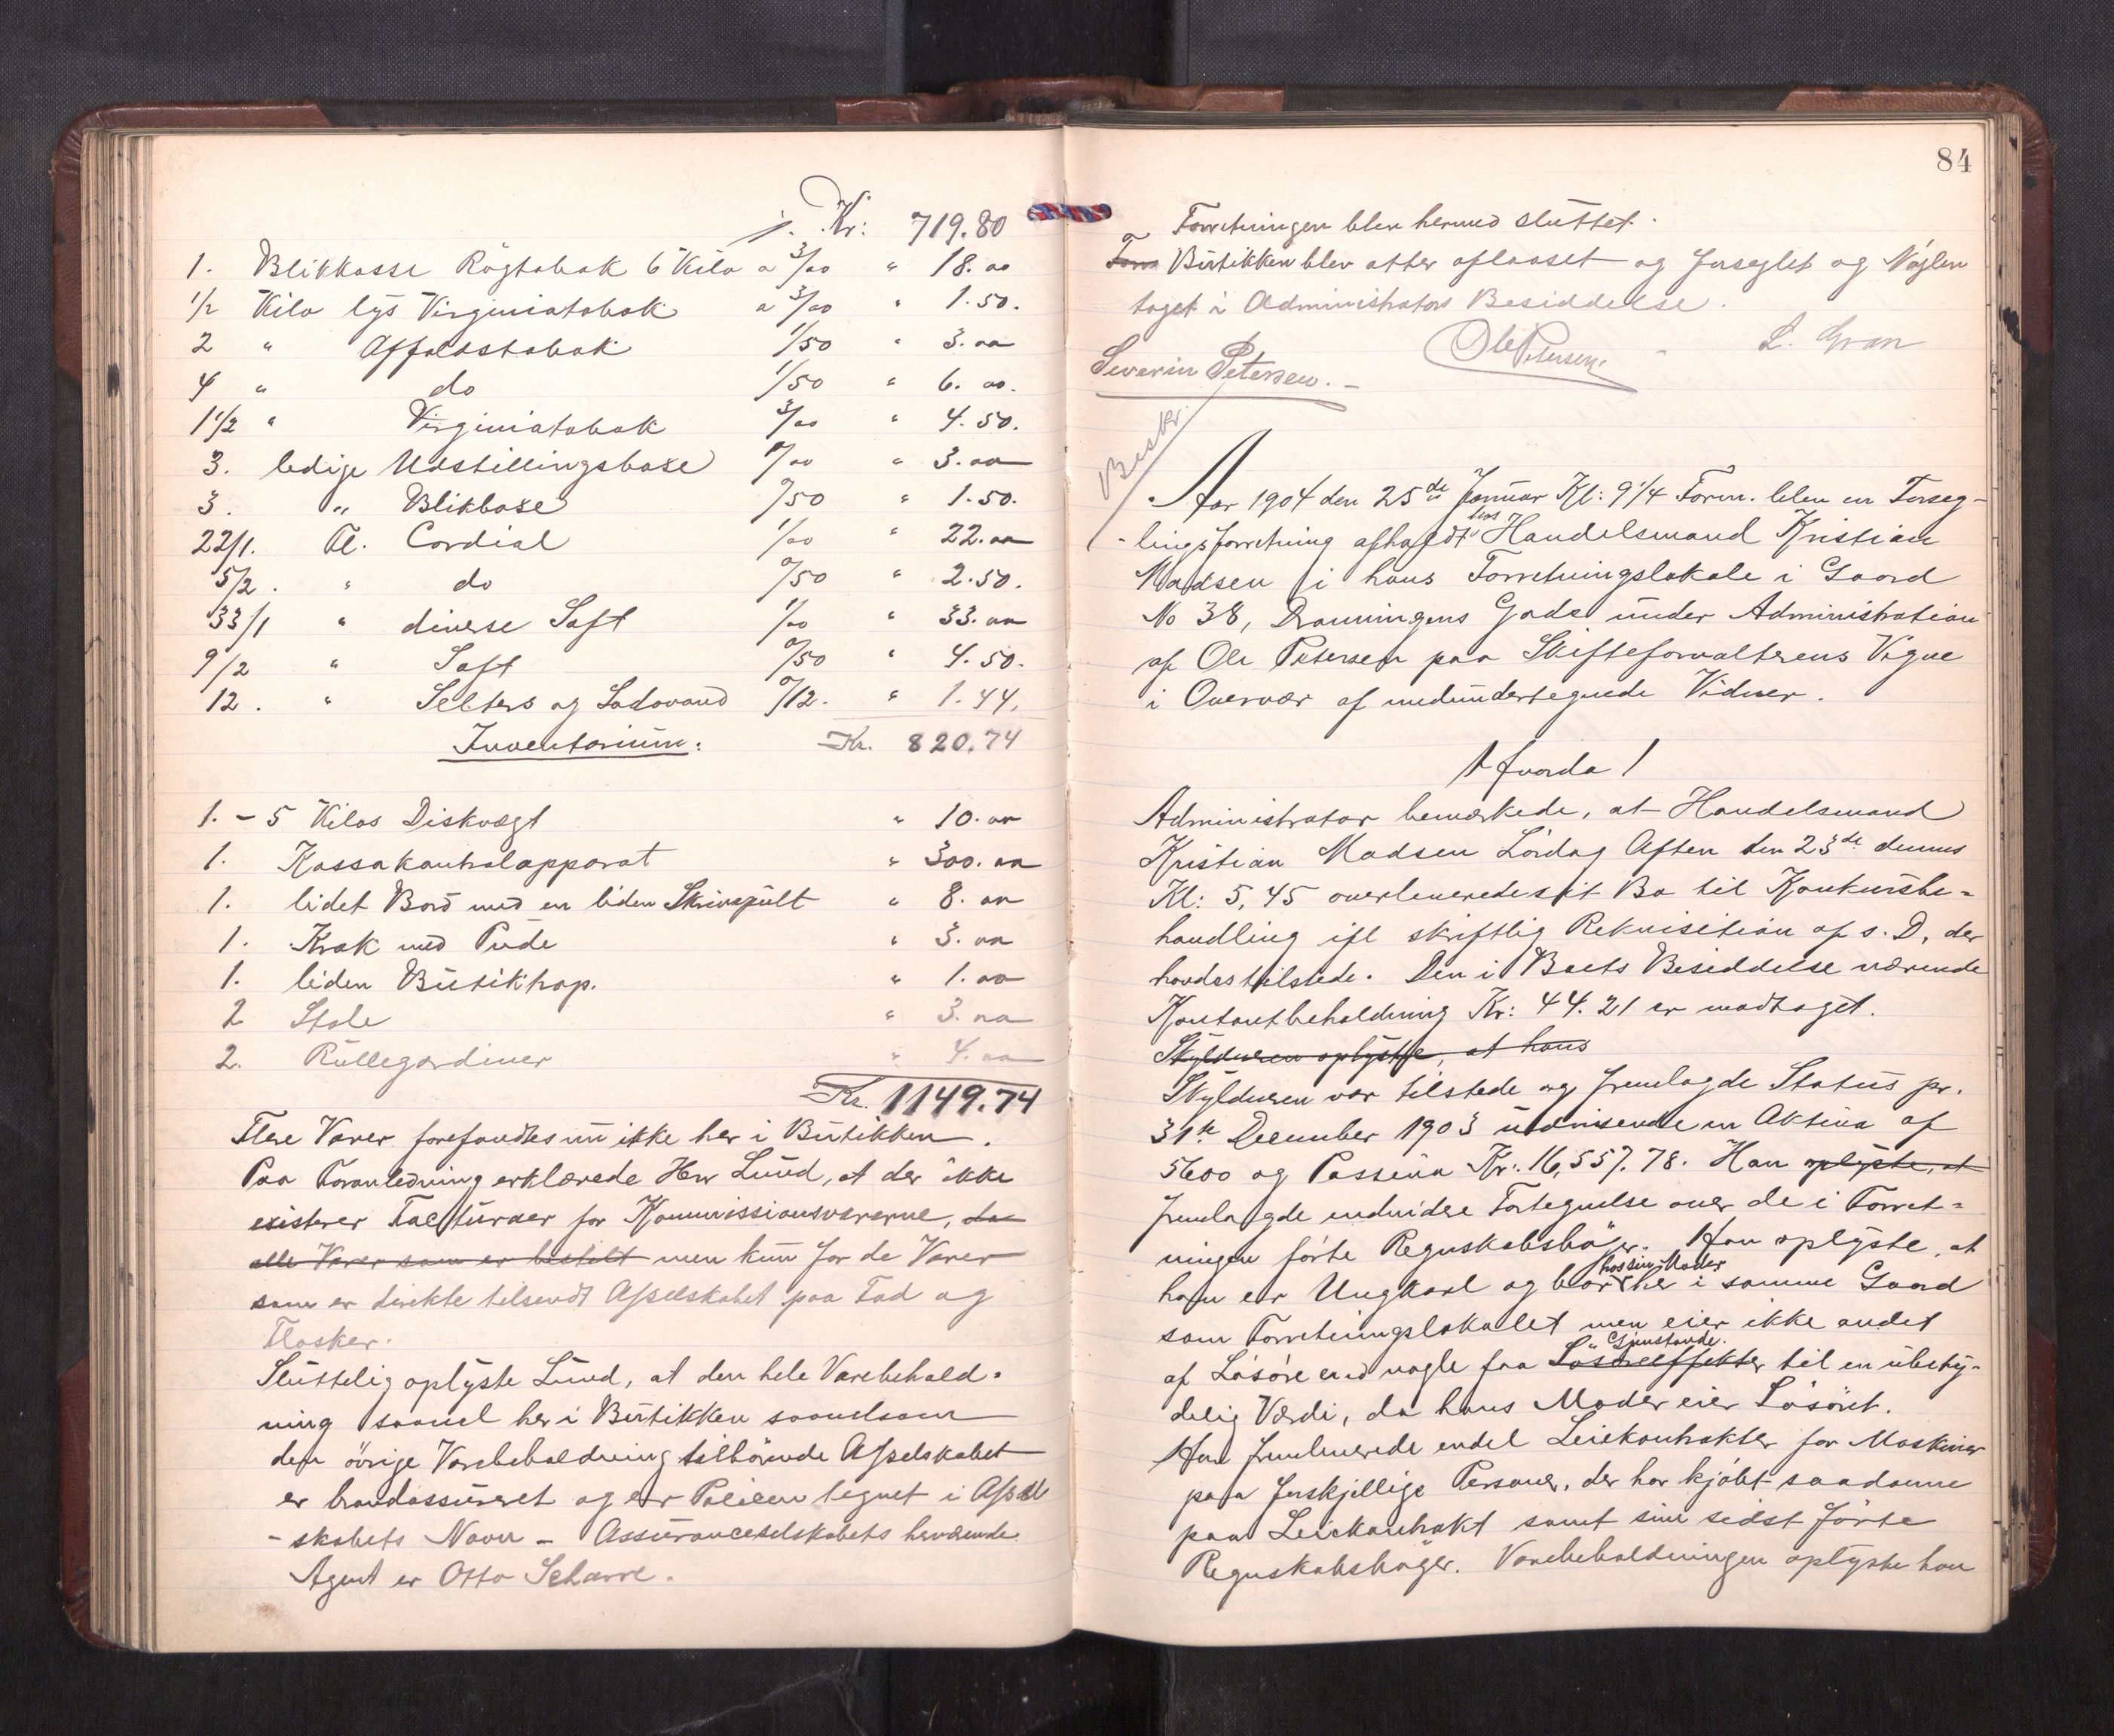 Kr: 719.80
1. Blikkasse Rögtobak 6 Kilo a 3/00 " 18.00
1/2 Kilo lys Virginiatobak a 3/00 " 1.50.
2 " Affaldstobak 1/50 " 3.00
4 " do 1/50 " 6.00.
1 1/2 " Virginiatobak 3/00 " 4.50.
3. ledige Udstillingsbokse 1/00 " 3.00
3. " Blikbokse 0/50 " 1.50.
22/1. Fl. Cordial 1/00 " 22.00
5/2. " do 0/50 " 2.50.
33/1 " diverse Saft 1/00 " 33.00
9/2 " Saft 0/50 " 4.50.
12. " Selters og Sodavand 0/12. " 1.44.
Inventarium: Kr. 820.74
1. - 5 Kilos Diskvægt " 10.00
1. Kassakontrolapparat " 300.00
1. lidet Bord med en liden Skrivepult " 8.00
1. Krak med Pude " 3.00
1. liden Butiktrap. " 1.00
2 Stole " 3.00
2. Rullegardiner " 4.00
Kr. 1149.74
Flere Varer forefandtes nu ikke her i Butikken.
Paa Foranledning erklærede Herr Lund, at der ikke
existerer Facturaer for Kommissionsvarerne, da
alle Varer som er bestilt men kun for de Varer
som er direkte tilsendt Afselskabet paa Fad og
Flasker.
Sluttelig oplyste Lund, at den hele Varebehold-
ning saavel her i Butikken saavelsom
den övrige Varebeholdning tilhörende Afselskabet
er brandassureret og er Policen tegnet i Afsel
-skabets Navn - Assuranceselskabets herværende
Agent er Otto Scharre.
84
Forretningen blev hermed sluttet.
Forr Butikken blev atter aflaaset og forseglet og Nöglen
taget i Administrators Besiddelse.
Severin Petersen. - Ole Petersen. - L. Gran
Beskr.
Aar 1904 den 25de Januar Kl: 9 1/4 Form. blev en Forseg-
lingsforretning afholdt hos Handelsmand Kristian
Madsen i hans Forretningslokale i Gaard
No 38, Dronningens Gade under Administration
af Ole Petersen paa Skifteforvalterens Vegne
i Overvær af medundertegnede Vidner.
Hvorda!
Administrator bemærkede, at Handelsmand
Kristian Madsen Lördag Aften den 23de dennes
Kl: 5,45 overleverede sit Bo til Konkursbe-
handling ifl skriftlig Rekvisition af s. D. der
havdes tilstede. Den i Boets Besiddelse værende
Kontantbeholdning Kr: 44.21 er modtaget.
Skyldneren oplyste, at hans
Skyldneren var tilstede og fremlagde Status pr.
31te December 1903 udvisende en Aktiva af
5600 og Passiva Kr: 16,557.78. Han oplyste, at
fremlagde endvidere Fortegnelse over de i Forret-
ningen förte Regnskabsböger. Han oplyste, at
han er Ungkarl og bor hos sin Moder her i samme Gaard
som Forretningslokalet men eier ikke andet
af Lösöre end nogle faa Lösöreeffekter Gjenstande. til en ubety-
delig Værdi, da hans Moder eier Lösöret.
Han fremleverede endel Leiekontrakter for Maskiner
paa forskjellige Personer, der har kjöbt saadanne
paa Leiekontrakt samt sine sidst förte
Regnskabsböger. Varebeholdningen oplyste han